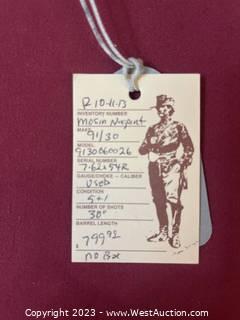 R 10-11-13
INVENTORY NUMBER
Mosin Nagant
MAKE
91/30
MODEL
9130060026
SERIAL NUMBER
7.62x54R
GAUGE/CHOKE – CALIBER
Used
CONDITION
5+1
NUMBER OF SHOTS
30"
BARREL LENGTH
$799.95
No Box
Copyright © 2023 - www.WestAuction.com